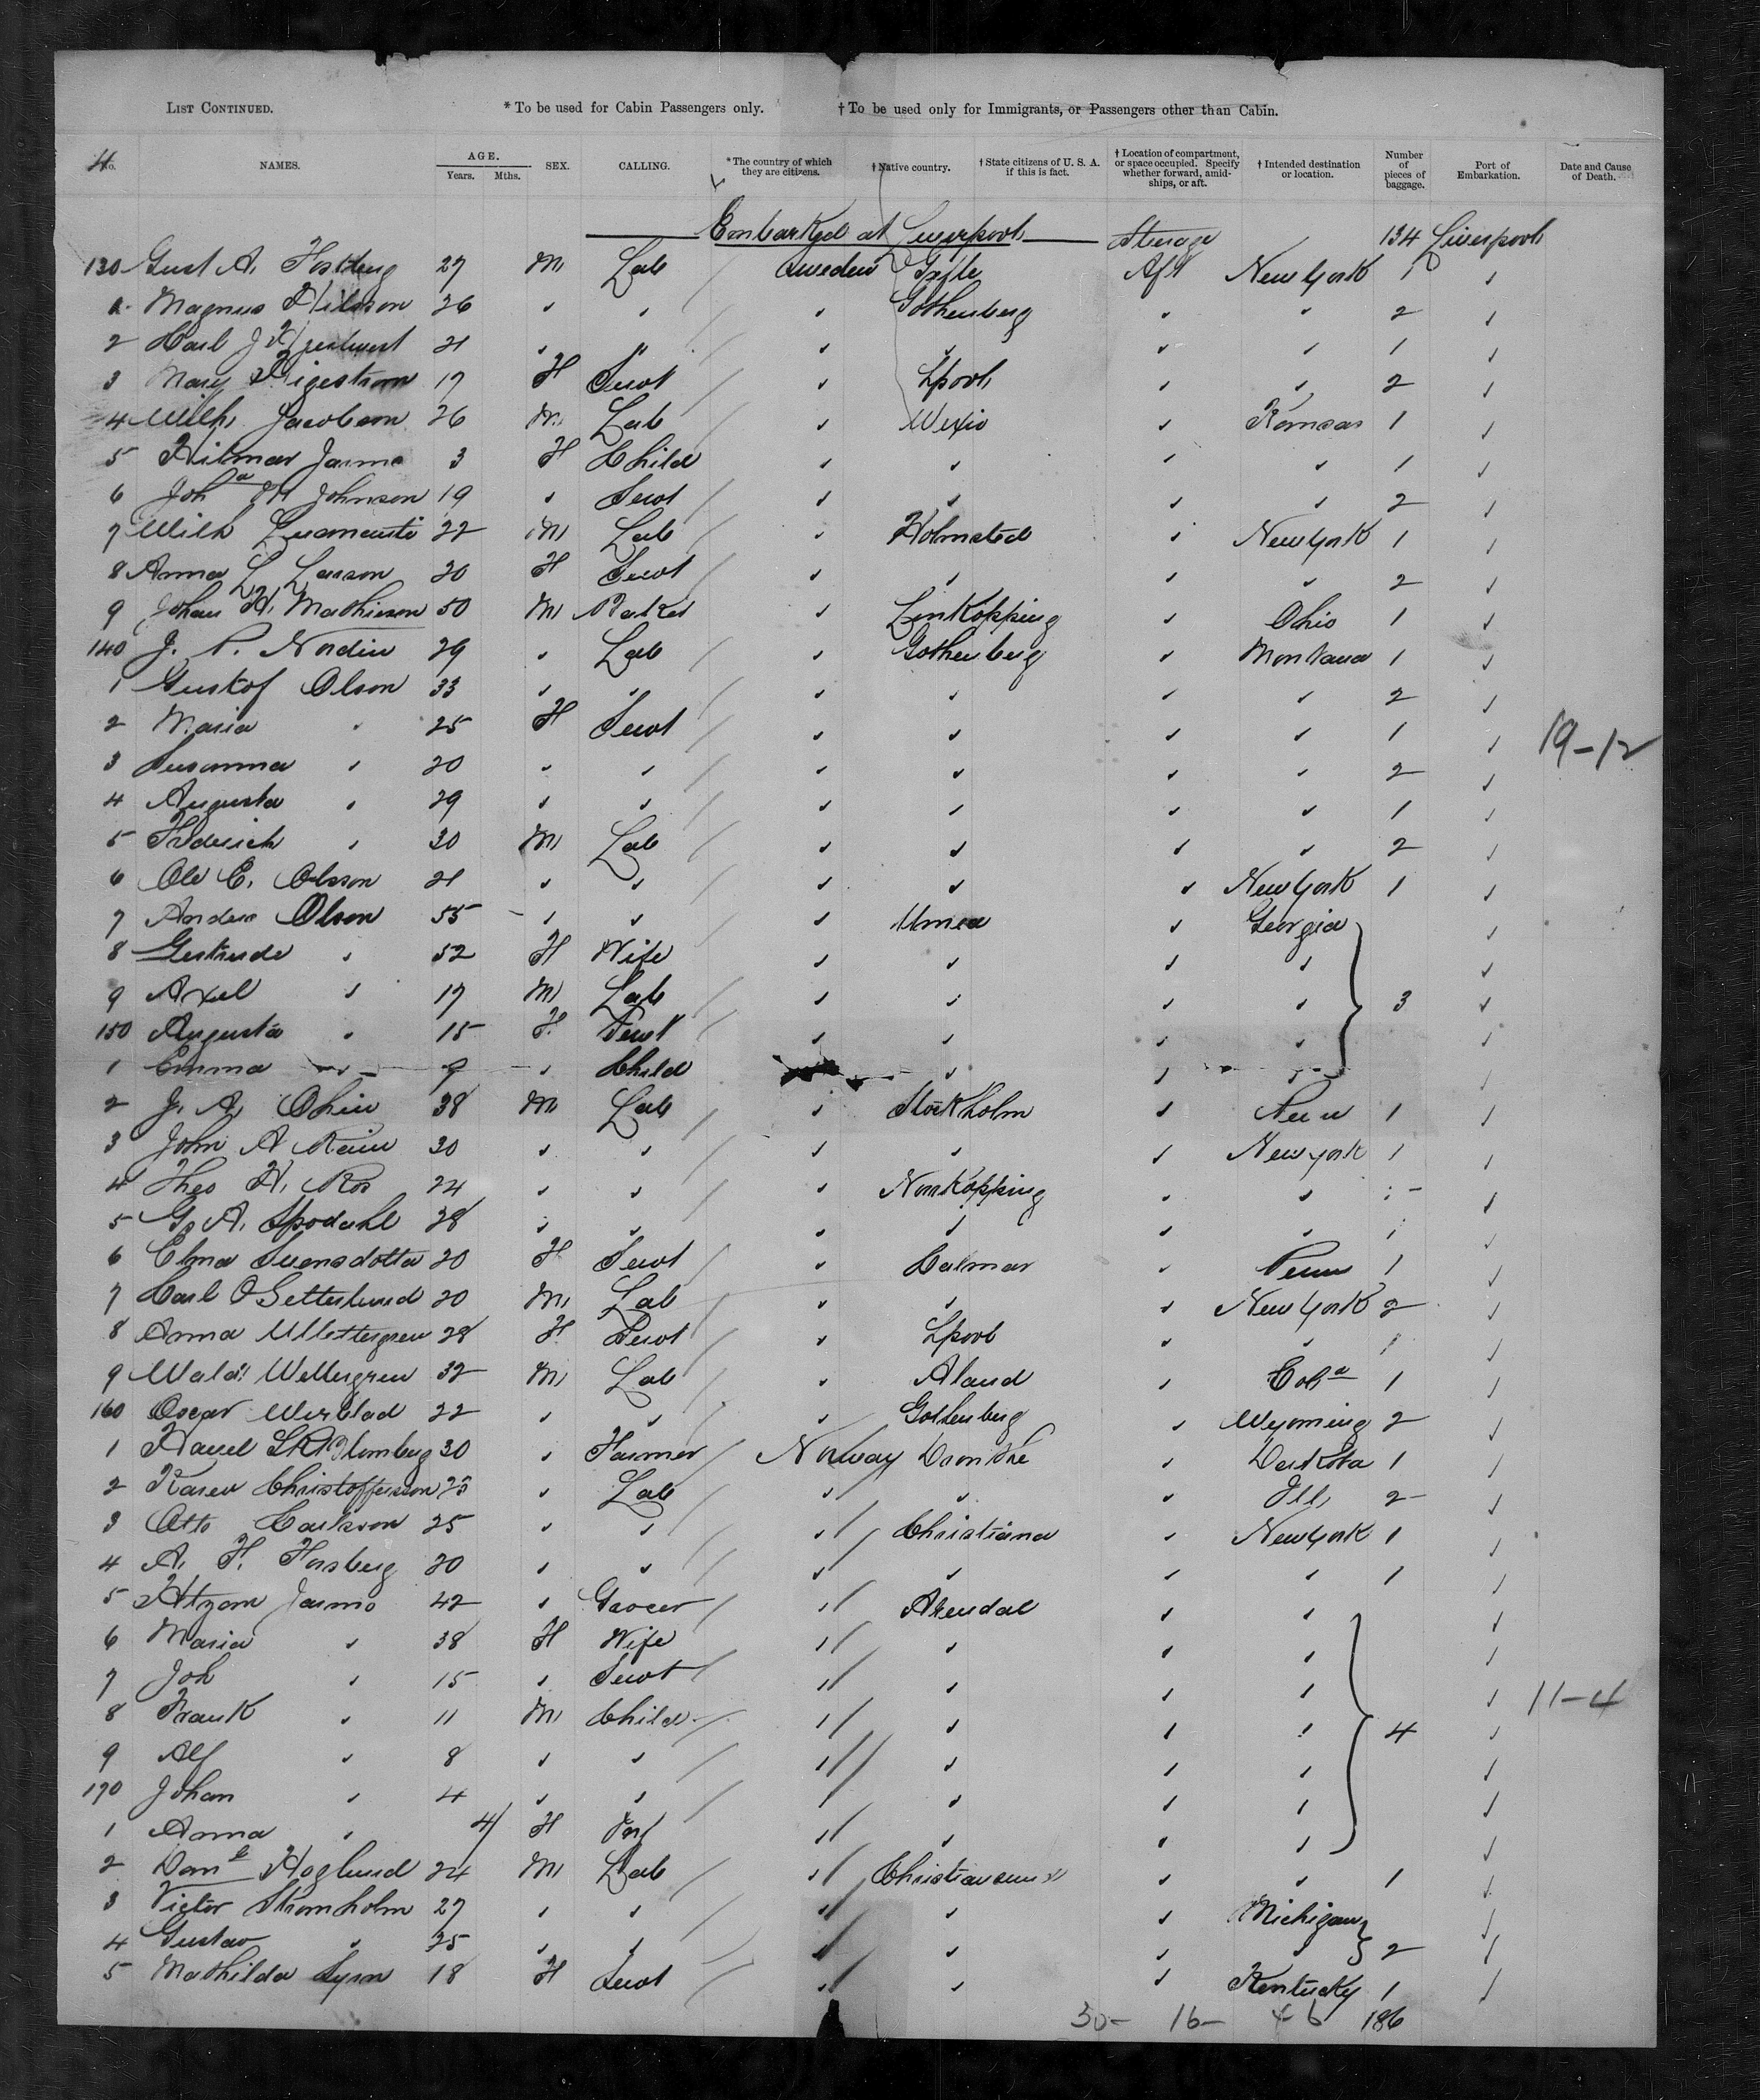 LIST CONTINUED. * To be used for Cabin Passengers only. † To be used only for Immigrants, or Passengers other than Cabin.
4 No. NAMES. AGE. Years. Mths. SEX. CALLING. * The country of which they are citizens. † Native country. † State citizens of U. S. A. if this is fact. † Location of compartment, or space occupied. Specify whether forward, amidships, or aft. † Intended destination or location. Number of pieces of baggage. Port of Embarkation. Date and Cause of Death.
Embarked at Liverpool Steerage 134 Liverpool
130 Gust A. 27 M Lab Sweden Gefle Aft New York 1 "
1 Magnus Nilsson 26 " " " Gothenberg " " 2 "
2 Carl J 21 " " " " " " 1 "
3 Mary 17 F Servt " Lpool " " 2 "
4 Wilh. Jacobson 26 M Lab " Wexio " Kansas 1 "
5 Hilmar Jarmo 3 F Child " " " " 1 "
6 Joha M Johnson 19 " Servt " " " " 2 "
7 Wilh 22 M Lab " Holmsted " New York 1 "
8 Anna L Larson 20 F Servt " " " " 2 "
9 Johan H. Mathieson 50 M " Linkopping " Ohio 1 "
140 J. P. Nordin 29 " Lab " Gothenberg " Montana 1 "
1 Gustof Olson 33 " " " " " " 2 "
2 Maria " 25 F Servt " " " " 1 " 19-12
3 Susanna " 20 " " " " " " 2 "
4 Augusta " 29 " " " " " " 1 "
5 Frderich " 30 M Lab " " " " 2 "
6 Ole E. Olsson 21 " " " " " New York 1 "
7 Anders Olson 55 " " " Umea " Georgia "
8 Gertrude " 52 F Wife " " " " "
9 Axel " 17 M Lab " " " " 3 "
150 Augusta " 15 F. Servt " " " " "
1 Emma " 9 " Child " " " "
2 J. A. Ohin 38 M Lab " Stockholm " Penn 1 "
3 John A Rein 30 " " " " " New York 1 "
4 Theo H. Ros 24 " " " Norkopping " " "
5 A. Spodahl 28 " " " " " " 1 "
6 Elma Svensdotta 20 F Servt " Calmar " Penn 1 "
7 Carl O Setterlund 20 M Lab " " " New York 2 "
8 Anna 28 F. Servt " Lpool " " 1 "
9 Wald. Wettergren 32 M Lab " Aland " Cola 1 "
160 Oscar 22 " " " Gothenberg " Wyoming 2 "
1 30 " Farmer Norway " Dakota 1 "
2 Karen Christofferson " Lab " " " Ill. 2 "
3 Otto Carlsson 25 " " " Christiana " New York 1 "
4 A. F. Forsberg 20 " " " " " " 1 "
5 Jarmo 42 " Grocer " Arendal " " "
6 Maria " 38 F Wife " " " " "
7 Joh " 15 " Servt " " " " " 11-4
8 Frank " 11 M Child " " " " 4 "
9 Alf " 8 " " " " " " "
170 Johan " 4 " " " " " "
1 Anna " 4 F Inf " " " " "
2 Danl Hoglund 24 M Lab " Christiansund " " 1 "
3 Victor Stromholm 27 " " " " " Michigan "
4 Gustav " 25 " " " " " " 2 "
5 Mathilda 18 F Servt " " " Kentucky 1 "
30- 16- 46 186